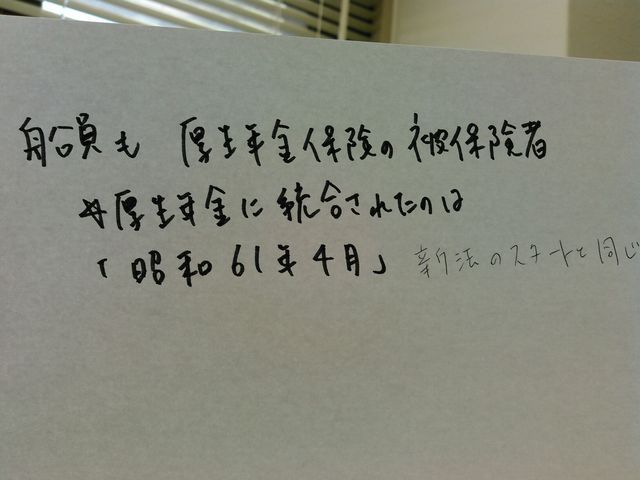 船員も 厚生年金保険の被保険者
☆厚生年金に統合されたのは
「昭和61年4月」 新法のスタートと同じ